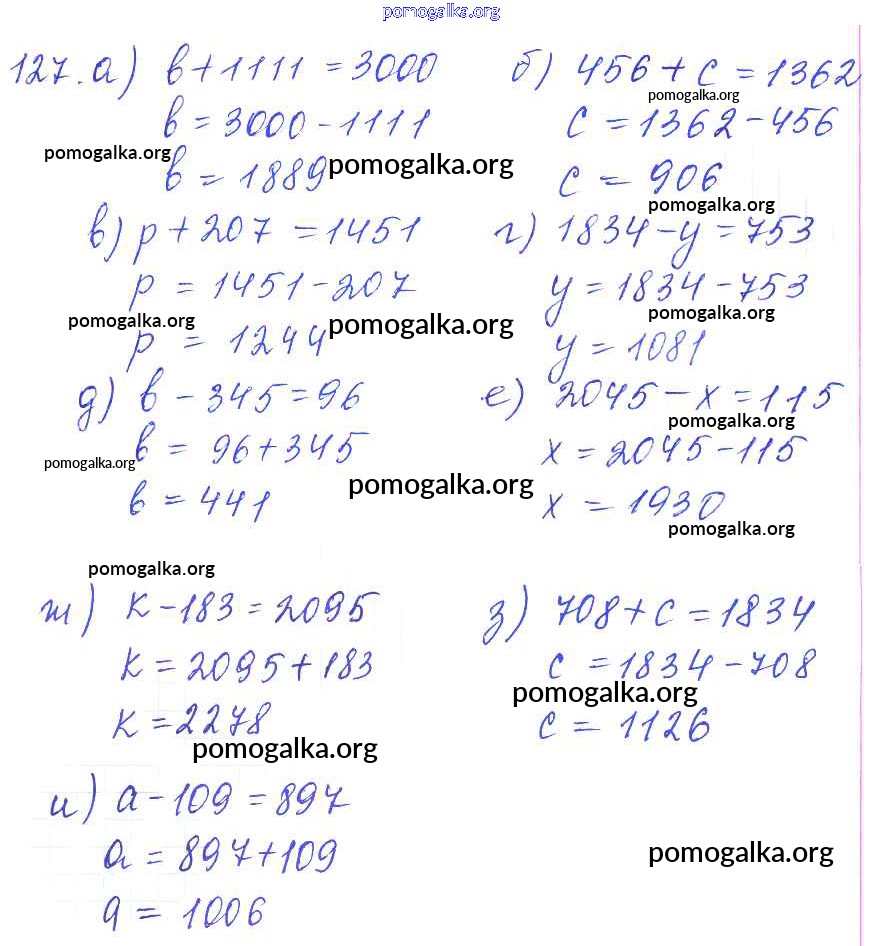 pomogalka.org
127. а) в + 1111 = 3000 б) 456 + с = 1362
pomogalka.org
в = 3000 - 1111 с = 1362 - 456
pomogalka.org pomogalka.org
в = 1889 с = 906
pomogalka.org
в) р + 207 = 1451 г) 1834 - у = 753
р = 1451 - 207 у = 1834 - 753
pomogalka.org pomogalka.org pomogalka.org
р = 1244 у = 1081
д) в - 345 = 96 е) 2045 - х = 115
pomogalka.org
в = 96 + 345 х = 2045 - 115
pomogalka.org pomogalka.org
в = 441 х = 1930
pomogalka.org
pomogalka.org
ж) к - 183 = 2095 з) 708 + с = 1834
к = 2095 + 183 с = 1834 - 708
pomogalka.org
к = 2278 с = 1126
pomogalka.org
и) а - 109 = 897
а = 897 + 109
pomogalka.org
а = 1006